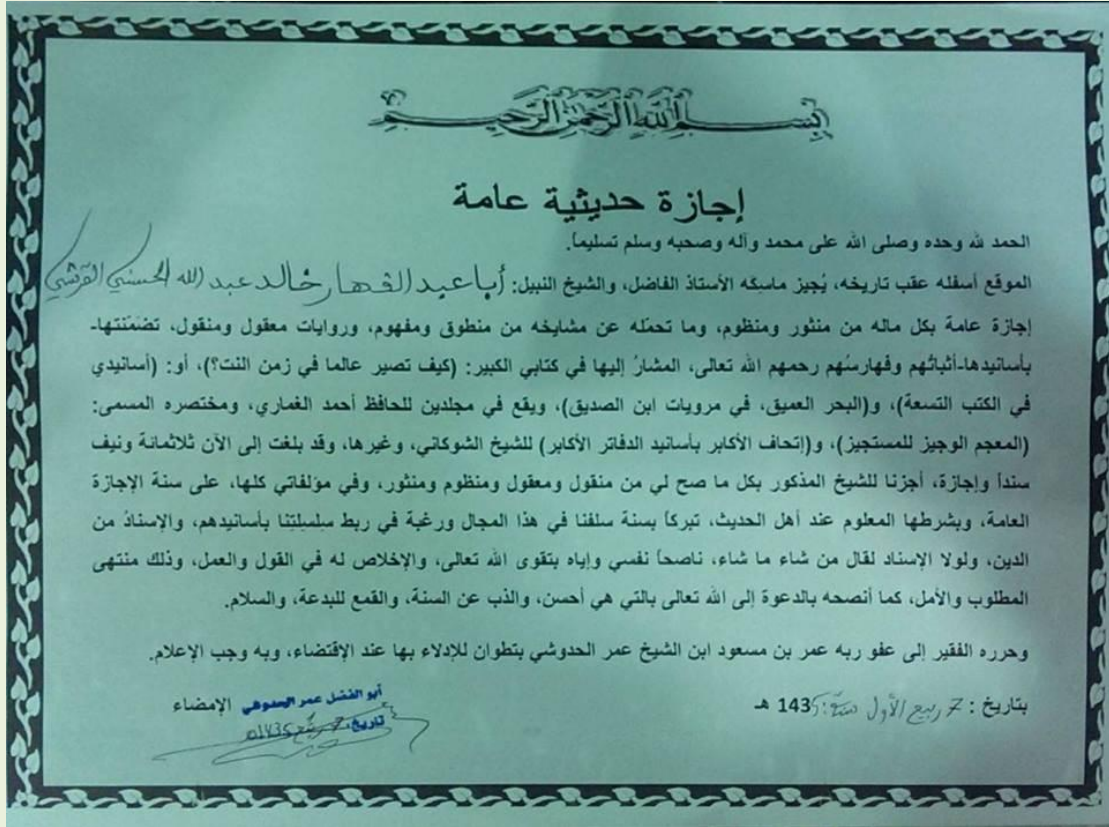 بسم الله الرحمن الرحيم
إجازة حديثية عامة
الحمد لله وحده وصلى الله على محمد وآله وصحبه وسلم تسليماً.
الموقع أسفله عقب تاريخه، يُجيز ماسِكَه الأستاذ الفاضل، والشيخ النبيل: أبا عبد القهار خالد عبد الله الحسني القرشي
إجازة عامة بكل ماله من منثور ومنظوم، وما تحمّله عن مشايخه من منطوق ومفهوم، وروايات معقول ومنقول، تضمّنتها-
بأسانيدها-أثباتُهم وفهارسُهم رحمهم الله تعالى، المشارُ إليها في كتابي الكبير: (كيف تصير عالما في زمن النت؟)، أو: (أسانيدي
في الكتب التسعة)، و(البحر العميق، في مرويات ابن الصديق)، ويقع في مجلدين للحافظ أحمد الغماري، ومختصره المسمى:
(المعجم الوجيز للمستجيز)، و(إتحاف الأكابر بأسانيد الدفاتر الأكابر) للشيخ الشوكاني، وغيرها، وقد بلغت إلى الآن ثلاثمائة ونيف
سنداً وإجازة، أجزنا للشيخ المذكور بكل ما صح لي من منقول ومعقول ومنظوم ومنثور، وفي مؤلفاتي كلها، على سنة الإجازة
العامة، وبشرطها المعلوم عند أهل الحديث، تبركاً بسنة سلفنا في هذا المجال ورغبة في ربط سِلسِلتِنا بأسانيدهم، والإسنادُ من
الدين، ولولا الإسناد لقال من شاء ما شاء، ناصحاً نفسي وإياه بتقوى الله تعالى، والإخلاص له في القول والعمل، وذلك منتهى
المطلوب والأمل، كما أنصحه بالدعوة إلى الله تعالى بالتي هي أحسن، والذب عن السنة، والقمع للبدعة، والسلام.
وحرره الفقير إلى عفو ربه عمر بن مسعود ابن الشيخ عمر الحدوشي بتطوان للإدلاء بها عند الإقتضاء، وبه وجب الإعلام.
بتاريخ : 7 ربيع الأول سنة: 1435 هـ
الإمضاء
أبو الفضل عمر الحدوشي
تاريخ: